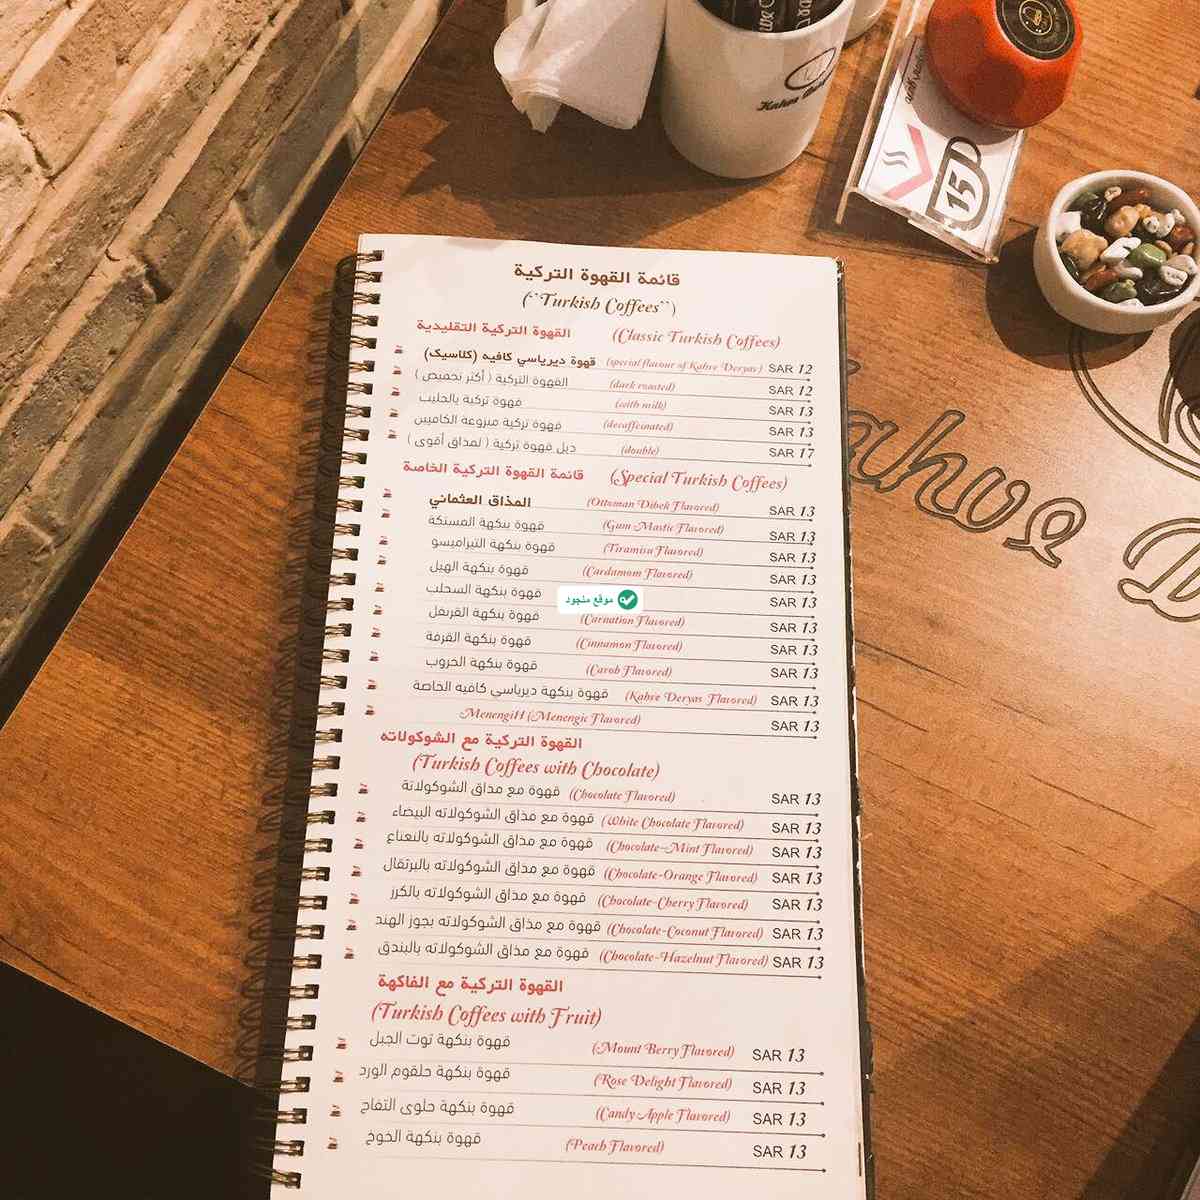 Kahve
15
قائمة القهوة التركية
(``Turkish Coffees``)
القهوة التركية التقليدية (Classic Turkish Coffees)
قهوة ديرياسي كافيه (كلاسيك) (special flavour of Kahve Deryas) SAR 12
القهوة التركية ( أكثر تحميص ) (dark roasted) SAR 12
قهوة تركية بالحليب (with milk) SAR 13
قهوة تركية منزوعة الكافيين (decaffeinated) SAR 13
دبل قهوة تركية ( لمذاق أقوى ) (double) SAR 17
قائمة القهوة التركية الخاصة (Special Turkish Coffees)
المذاق العثماني (Ottoman Dibek Flavored) SAR 13
قهوة بنكهة المستكة (Gum-Mastic Flavored) SAR 13
قهوة بنكهة التيراميسو (Tiramisu Flavored) SAR 13
قهوة بنكهة الهيل (Cardamom Flavored) SAR 13
قهوة بنكهة السحلب SAR 13
موقع منجود
قهوة بنكهة القرنفل (Carnation Flavored) SAR 13
قهوة بنكهة القرفة (Cinnamon Flavored) SAR 13
قهوة بنكهة الخروب (Carob Flavored) SAR 13
قهوة بنكهة ديرياسي كافيه الخاصة (Kahve Deryas Flavored) SAR 13
(Menengic Flavored) SAR 13
القهوة التركية مع الشوكولاته
(Turkish Coffees with Chocolate)
قهوة مع مذاق الشوكولاتة (Chocolate Flavored) SAR 13
قهوة مع مذاق الشوكولاته البيضاء (White Chocolate Flavored) SAR 13
قهوة مع مذاق الشوكولاته بالنعناع (Chocolate-Mint Flavored) SAR 13
قهوة مع مذاق الشوكولاته بالبرتقال (Chocolate-Orange Flavored) SAR 13
قهوة مع مذاق الشوكولاته بالكرز (Chocolate-Cherry Flavored) SAR 13
قهوة مع مذاق الشوكولاته بجوز الهند (Chocolate-Coconut Flavored) SAR 13
قهوة مع مذاق الشوكولاته بالبندق (Chocolate-Hazelnut Flavored) SAR 13
القهوة التركية مع الفاكهة
(Turkish Coffees with Fruit)
قهوة بنكهة توت الجبل (Mount Berry Flavored) SAR 13
قهوة بنكهة حلقوم الورد (Rose Delight Flavored) SAR 13
قهوة بنكهة حلوى التفاح (Candy Apple Flavored) SAR 13
قهوة بنكهة الخوخ (Peach Flavored) SAR 13
ahve D